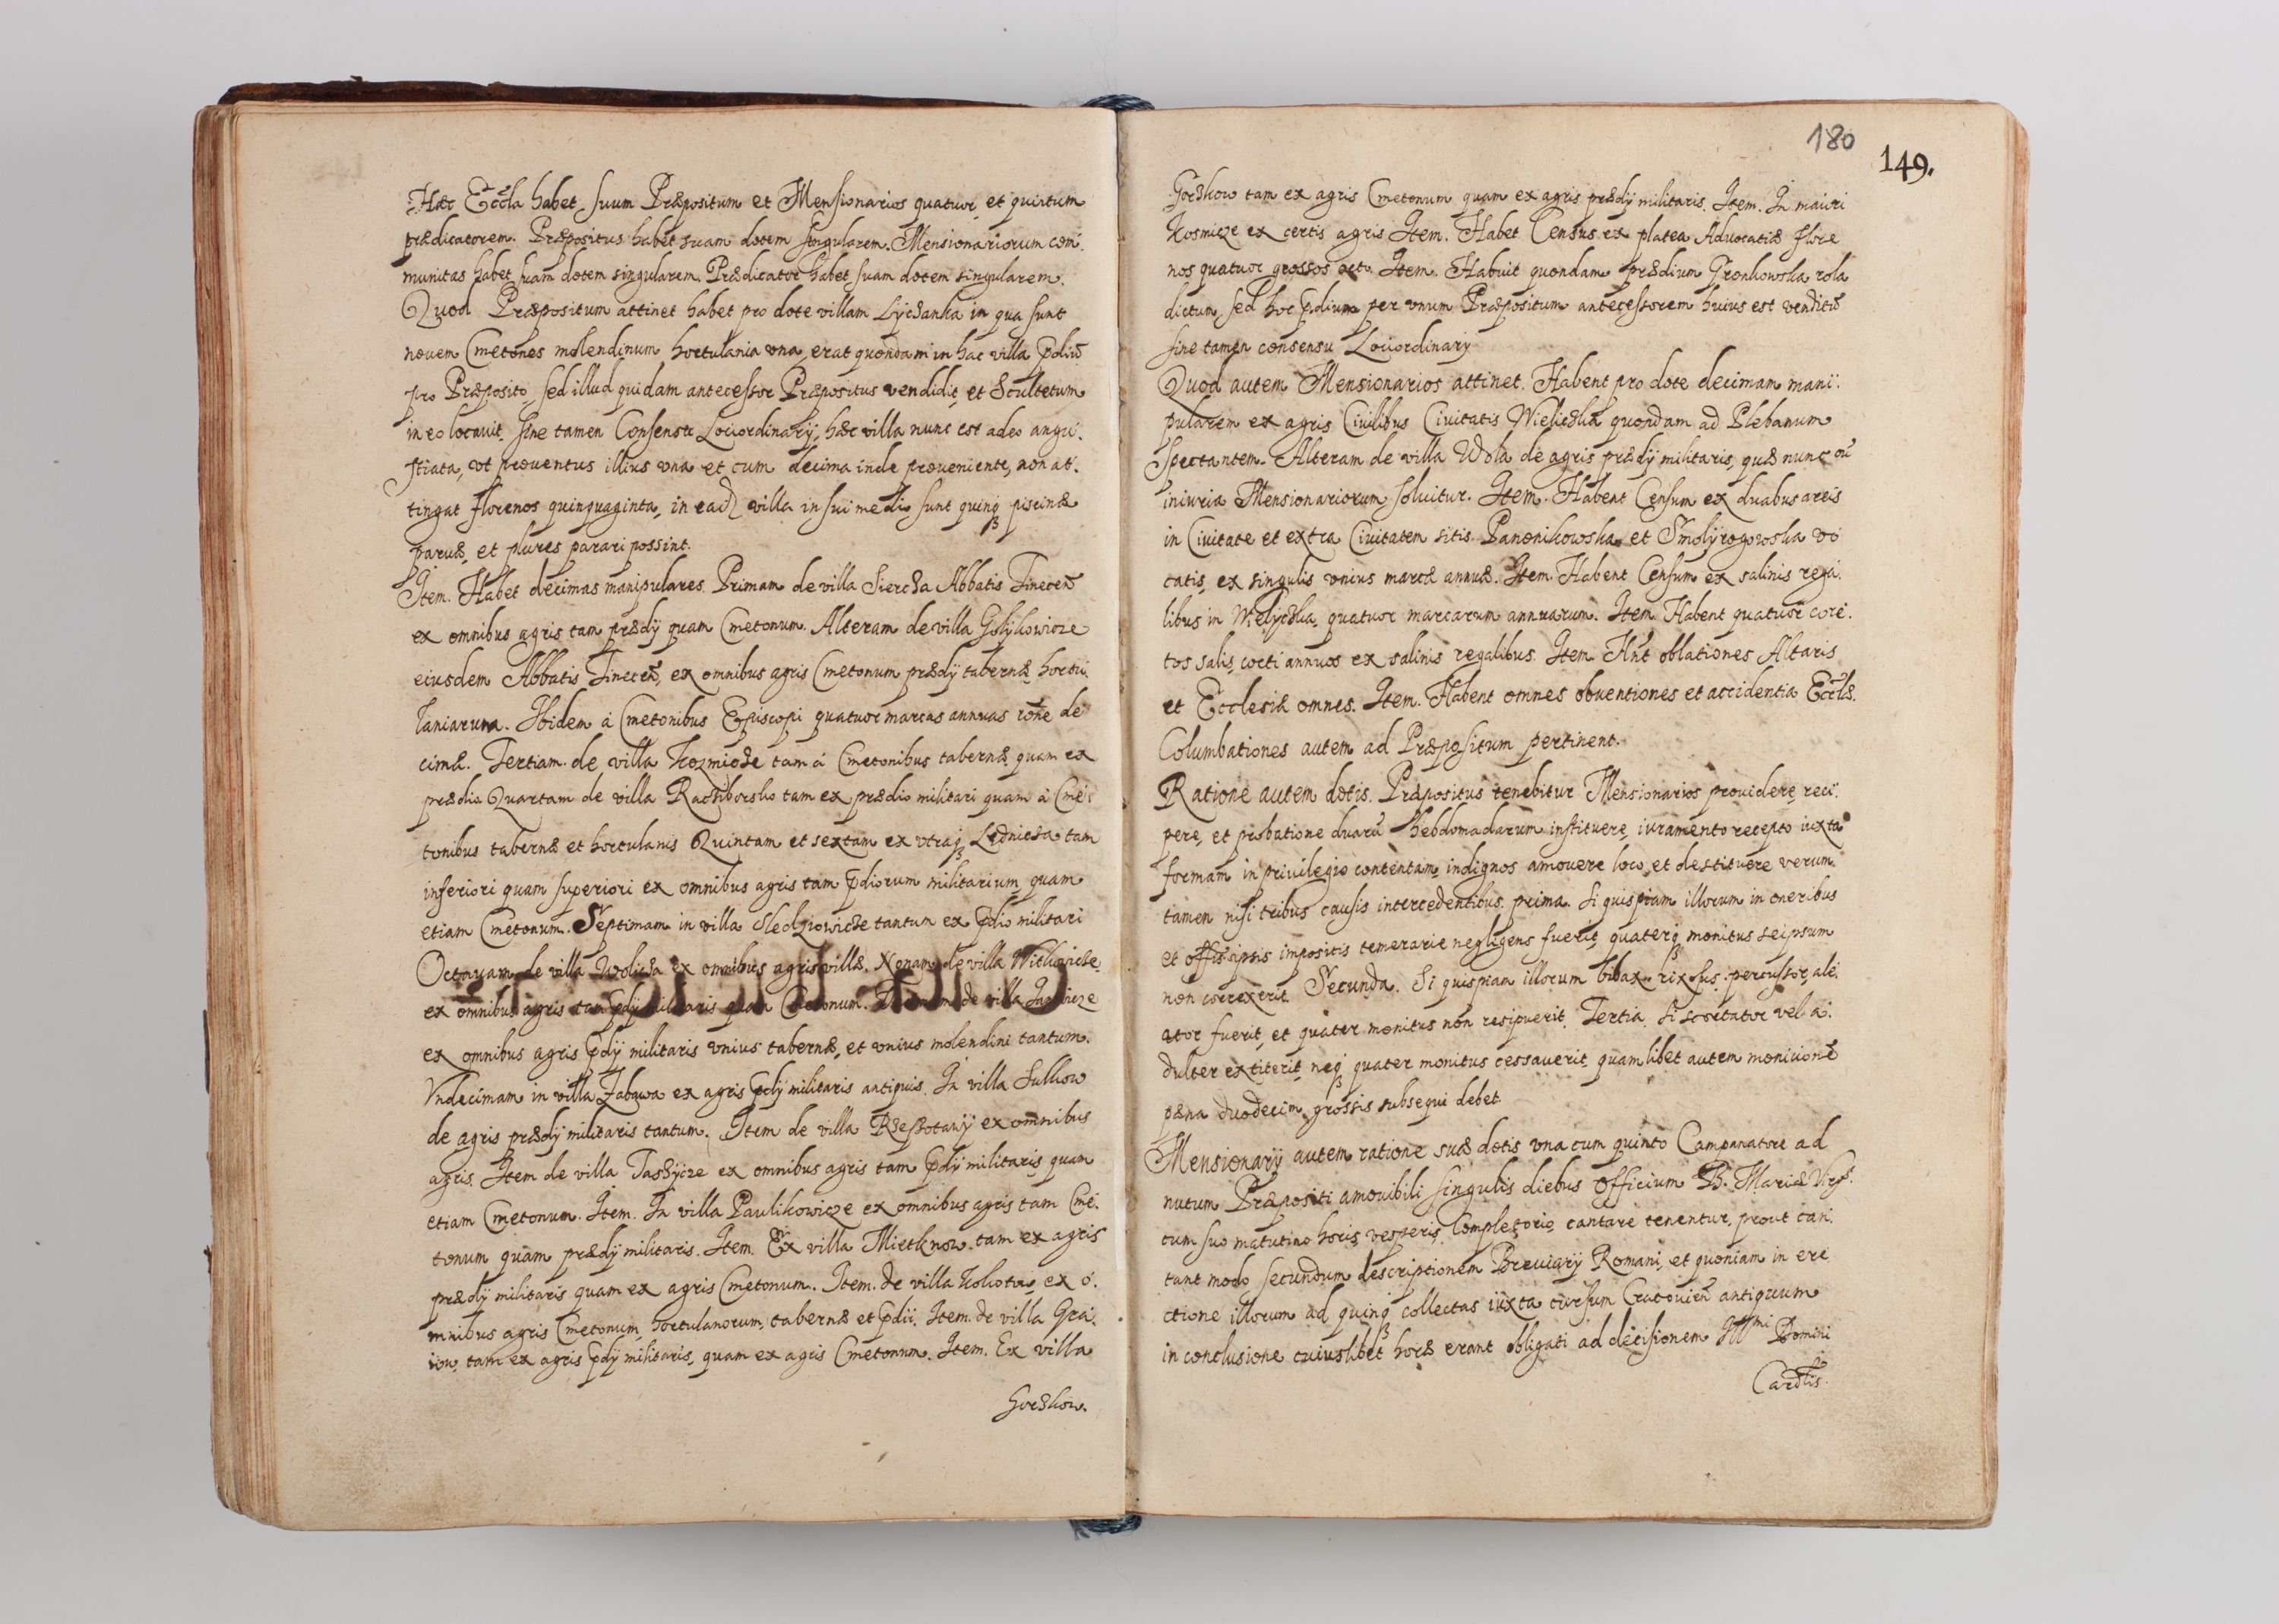 Hæc Eccl̃a habet suum Præpositum et Mensionarios quatuor et quintum
prædicatorem. Præpositus habet suam dotem singularem. Mensionariorum com̃
munitas habet suam dotem singularem. Prædicator habet suam dotem singularem.
Quod Præpositum attinet habet pro dote villam Lyczanka in qua sunt
novem Cmetones molendinum hortulania vna, erat quondam in hac villa p̃diũ
pro Præposito, sed illud quidam antecessor Præpositus vendidit, et Scultetum
in eo locavit, sine tamen Consensu Lociordinarÿ, hæc villa nunc est adeo angu.
stiata, vt proventus illius vna et cum decima inde proveniente, non at.
tingat florenos quinquaginta, in ead villa in sui medio sunt quinq piscinæ
parvæ, et plures parari possint.
Item. Habet decimas manipulares. Primam de villa Siercza Abbatis Tinecen̄
ex omnibus agris tam prædÿ quam Cmetonum. Alteram de villa Golykowicze
eiusdem Abbatis Tinecen̄, ex omnibus agris Cmetonum prædÿ tabernæ, hortu.
laniarum. Ibidem à Cmetonibus Episcopi quatuor marcas annuas rõne de
cimæ. Tertiam de villa Kozmicze tam à Cmetonibus tabernæ quam ex
prædio Quartam de villa Raciborsko tam ex prædio militari quam à Cme
tonibus tabernæ et hortulanis Quintam et sextam ex vtraq Lednicza tam
inferiori quam superiori ex omnibus agris tam p̃diorum militarium quam
etiam Cmetonum. Septimam in villa Sledziowicze tantum ex p̃dio militari
Octavam de villa Wolicza ex omnibus agris villæ. Nonam de villa Witkowicze
ex omnibus agris tam p̃dÿ militaris quam Cmetonum. de villa
ex omnibus agris p̃dÿ militaris vnius tabernæ, et vnius molendini tantum.
Vndecimam in villa Zabawa ex agris p̃dÿ militaris antiquis. In villa Sulkow
de agris prædÿ militaris tantum. Item de villa Rzeszotarÿ ex omnibus
agris. Item de villa Taszycze ex omnibus agris tam p̃dÿ militaris quam
etiam Cmetonum. Item. In villa Paulikowicze ex omnibus agris tam Cme.
tonum quam prædÿ militaris. Item. Ex villa Mietknow tam ex agris
prædÿ militaris quam ex agris Cmetonum. Item. de villa Kokotow ex o.
mnibus agris Cmetonum, hortulanorum, tabernæ et p̃dii. Item. de villa Gra.
iow, tam ex agris p̃dÿ militaris, quam ex agris Cmetonum. Item. Ex villa
Gorzkow.
180
149.
Gorzkow tam ex agris Cmetonum quam ex agris prædÿ militaris. Item. In maiori
Kosmicze ex certis agris Item. Habet Census ex platea Advocatiæ flore
nos quatuor grossos octo. Item. Habuit quondam prædium Gronkowska rola
dictum, sed hoc p̃dium per vnum Præpositum antecessorem huius est venditũ
sine tamen consensu Lociordinarÿ
Quod autem Mensionarios attinet. Habent pro dote decimam mani.
pularem ex agris Civilibus Civitatis Wieliczka quondam ad Plebanum
spectantem. Alteram de villa Wola de agris prædÿ militaris, quæ nunc cũ
iniuria Mensionariorum solvitur. Item. Habent Censum ex duabus areis
in Civitate et extra Civitatem sitis. Panonikowska et Smolyrogowska vo
catis, ex singulis vnius marcæ annuæ. Item. Habent Censum ex salinis rega.
libus in Wielyczka, quatuor marcarum annuarum. Item Habent quatuor core.
tos salis cocti annuos ex salinis regalibus. Item. Hñt oblationes Altaris
et Ecclesiæ omnes. Item. Habent omnes obventiones et accidentia Eccl̃æ.
Columbationes autem ad Præpositum pertinent.
Ratione autem dotis. Præpositus tenebitur Mensionarios providere, reci.
pere, et probatione duarũ hebdomadarum instituere, iuramento recepto iuxta
formam in privilegio contentam, indignos amovere loco, et destituere verum
tamen nisi tribus causis intercedentibus. prima. Si quispiam illorum in oneribus
et offis ipsis impositis temerarie negligens fuerit, quaterq monitus seipsum
non correxerit. Secunda. Si quispiam illorum bibax rixosus percussor, ale.
ator fuerit, et quater monitus non resipuerit. Tertia. Si scortator vel a.
dulter extiterit, neq quater monitus cessaverit, quamlibet autem monicionẽ
pæna duodecim grossis subsequi debet.
Mensionarÿ autem ratione suæ dotis vna cum quinto Campanatore ad
nutum Præpositi amovibili singulis diebus Officium B. Mariæ Virg̃.
cum suo matutino horis, vesperis, Completorio, cantare tenentur, prout can.
tant modo secundum descriptionem Breviarÿ Romani, et quoniam in ere
ctione illorum ad quinq collectas iuxta cursum Cracovien̄ antiquum
in conclusione cuiuslibet horæ erant obligati ad decisionem Illmi Domini
Cardlis.